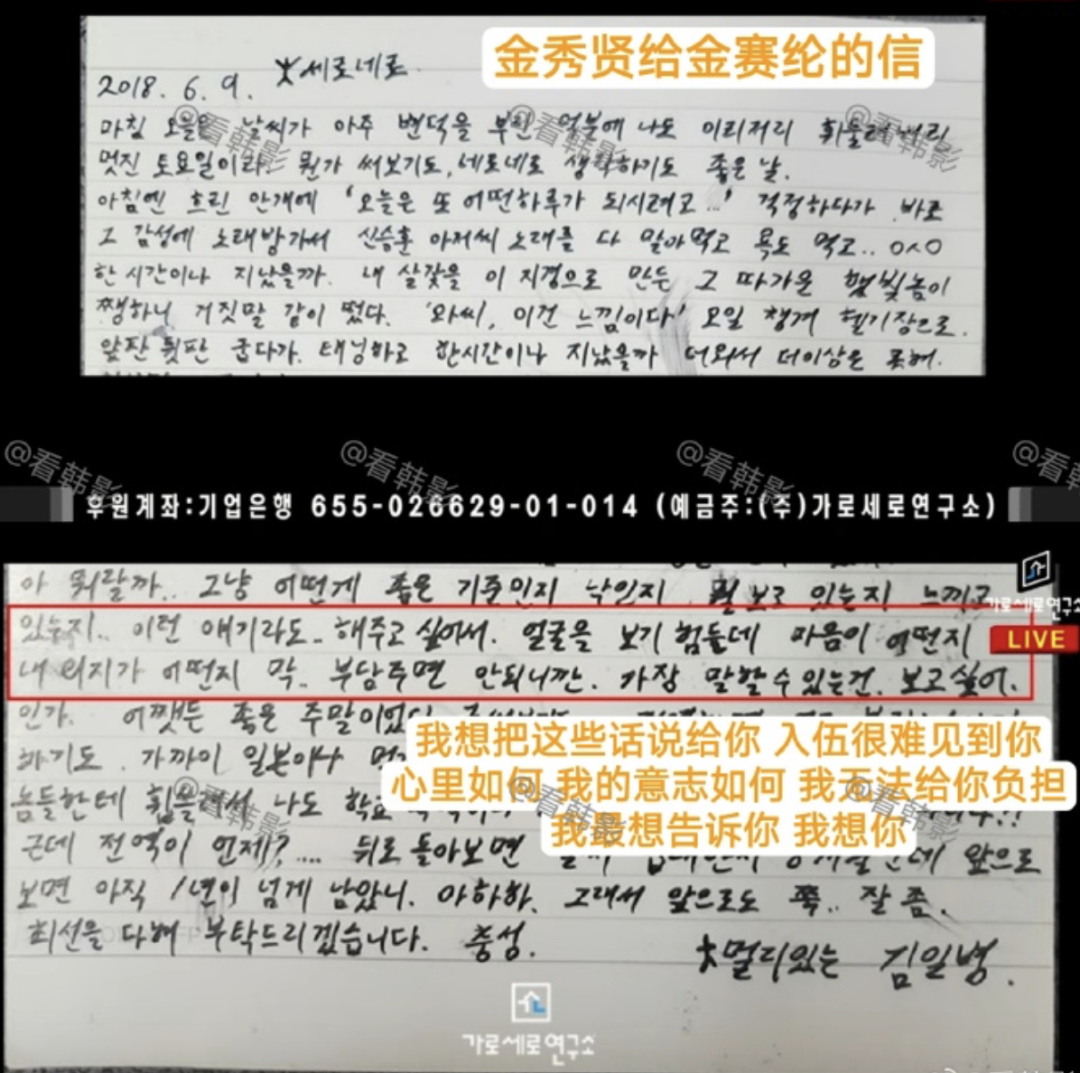 金秀贤给金赛纶的信
2018. 6. 9. 세로네로
마침 오늘은 날씨가 아주 변덕을 부린 덕분에 나도 이리저리 휘둘려버린
멋진 토요일이라. 뭔가 써보기도, 세로네로 생각하기도 좋은 날.
아침엔 흐린 안개에 '오늘은 또 어떤하루가 되시려고...' 걱정하다가 바로
그 감성에 노래방가서 신승훈 아저씨 노래를 다 말아먹고 욕도 먹고.. ㅇㅅㅇ
한 시간이나 지났을까. 내 살갗을 이 지경으로 만든 그 따가운 햇빛놈이
쨍하니 거짓말 같이 떴다. '와씨, 이건 느낌이다' 오일 챙겨 헬기장으로.
앞판 뒷판 굽다가. 태닝하고 한시간이나 지났을까 더워서 더이상은 못해.
@看韩影 @看韩影 @看韩影 @看韩影
후원계좌:기업은행 655-026629-01-014 (예금주:(주)가로세로연구소)
아 뭐랄까.. 그냥 어떤게 좋은 기준인지 낙인지 뭘 보고 있는지 느끼고
가로세로연구소
있는지.. 이런 얘기라도.. 해주고 싶어서. 얼굴을 보기 힘들데 마음이 어떤지
LIVE
내 의지가 어떤지 막.. 부담주면 안되니깐. 가장 말할수있는건. 보고싶어.
인가. 어쨋든 좋은 주말이었
我想把这些话说给你 入伍很难见到你
하기도. 가까이 일본이나
心里如何 我的意志如何 我无法给你负担
놈들한테 휩쓸려서 나도
我最想告诉你 我想你
근데 전역이 언제?.... 뒤로 돌아보면 앞으로
보면 아직 1년이 넘게 남았니. 아하하. 그래서 앞으로도 쭉.. 잘 좀.
최선을 다해 부탁드리겠습니다. 충성.
멀리있는 김일병.
가로세로연구소